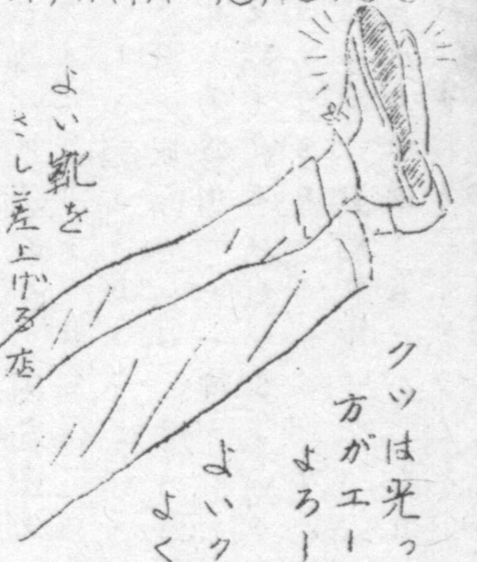 クツは光っ
方がエー
よろー
よいク
よく
よい靴を
さし差上げる店